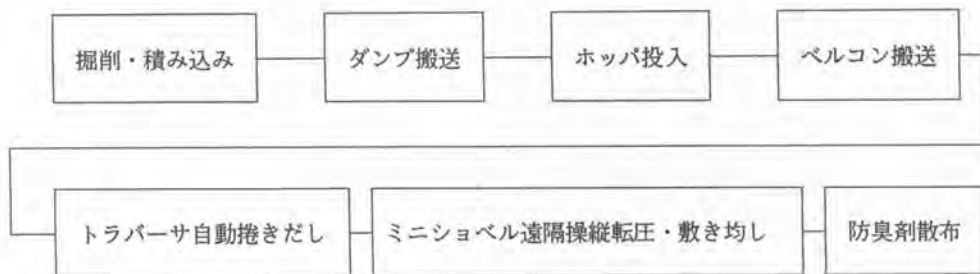 掘削・積み込み
ダンプ搬送
ホッパ投入
ベルコン搬送
トラバーサ自動捲きだし
ミニショベル遠隔操縦転圧・敷き均し
防臭剤散布